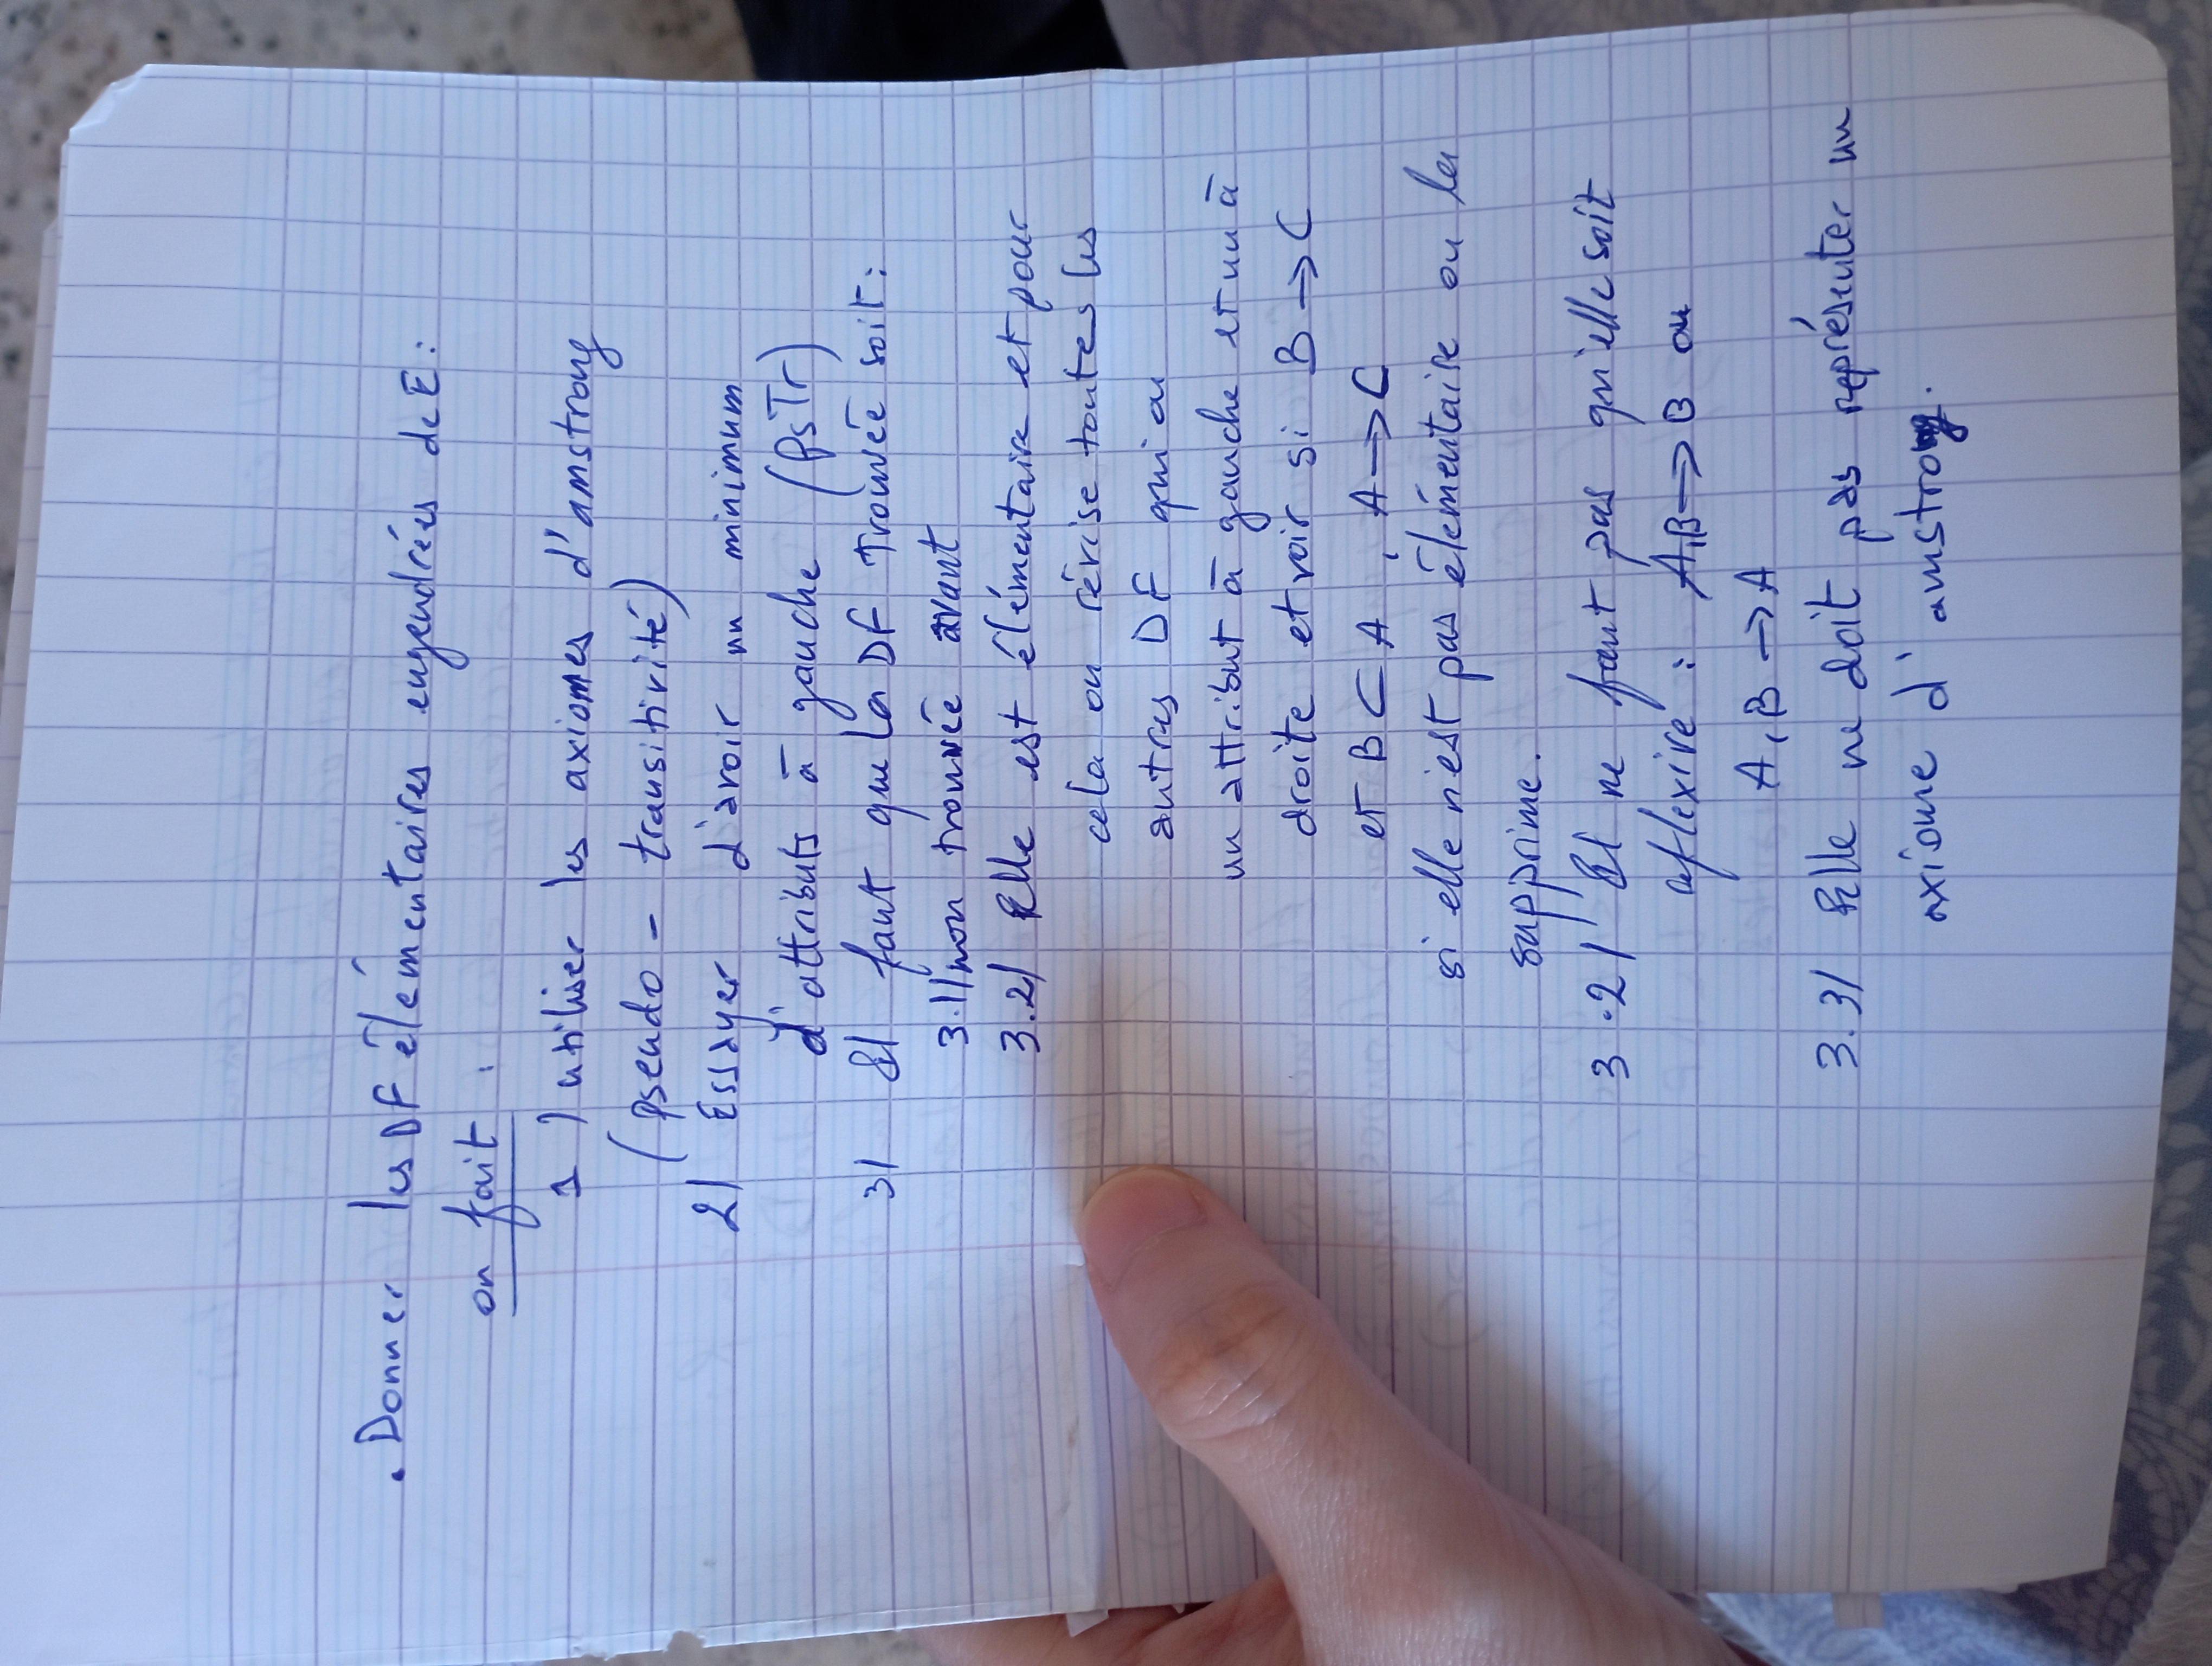 . Donner les DF élémentaires engendrées de E :
on fait :
1) utiliser les axiomes d'amstrong
(pseudo - transitivité)
2) Essayer d'avoir un minimum
d'attributs à gauche (PsTr)
3) il faut que la DF trouvée soit :
3.1) non trouvée avant
3.2) Elle est élémentaire et pour
cela on révise toutes les
autres DF qui on
un attribut à gauche et un à
droite et voir si B → C
et B ⊂ A , A → C
si elle n'est pas élémentaire on la
supprime.
3.2) il ne faut pas qu'elle soit
reflexive : A,B → B ou
A,B → A
3.3) Elle ne doit pas représenter un
axiome d'amstrong.